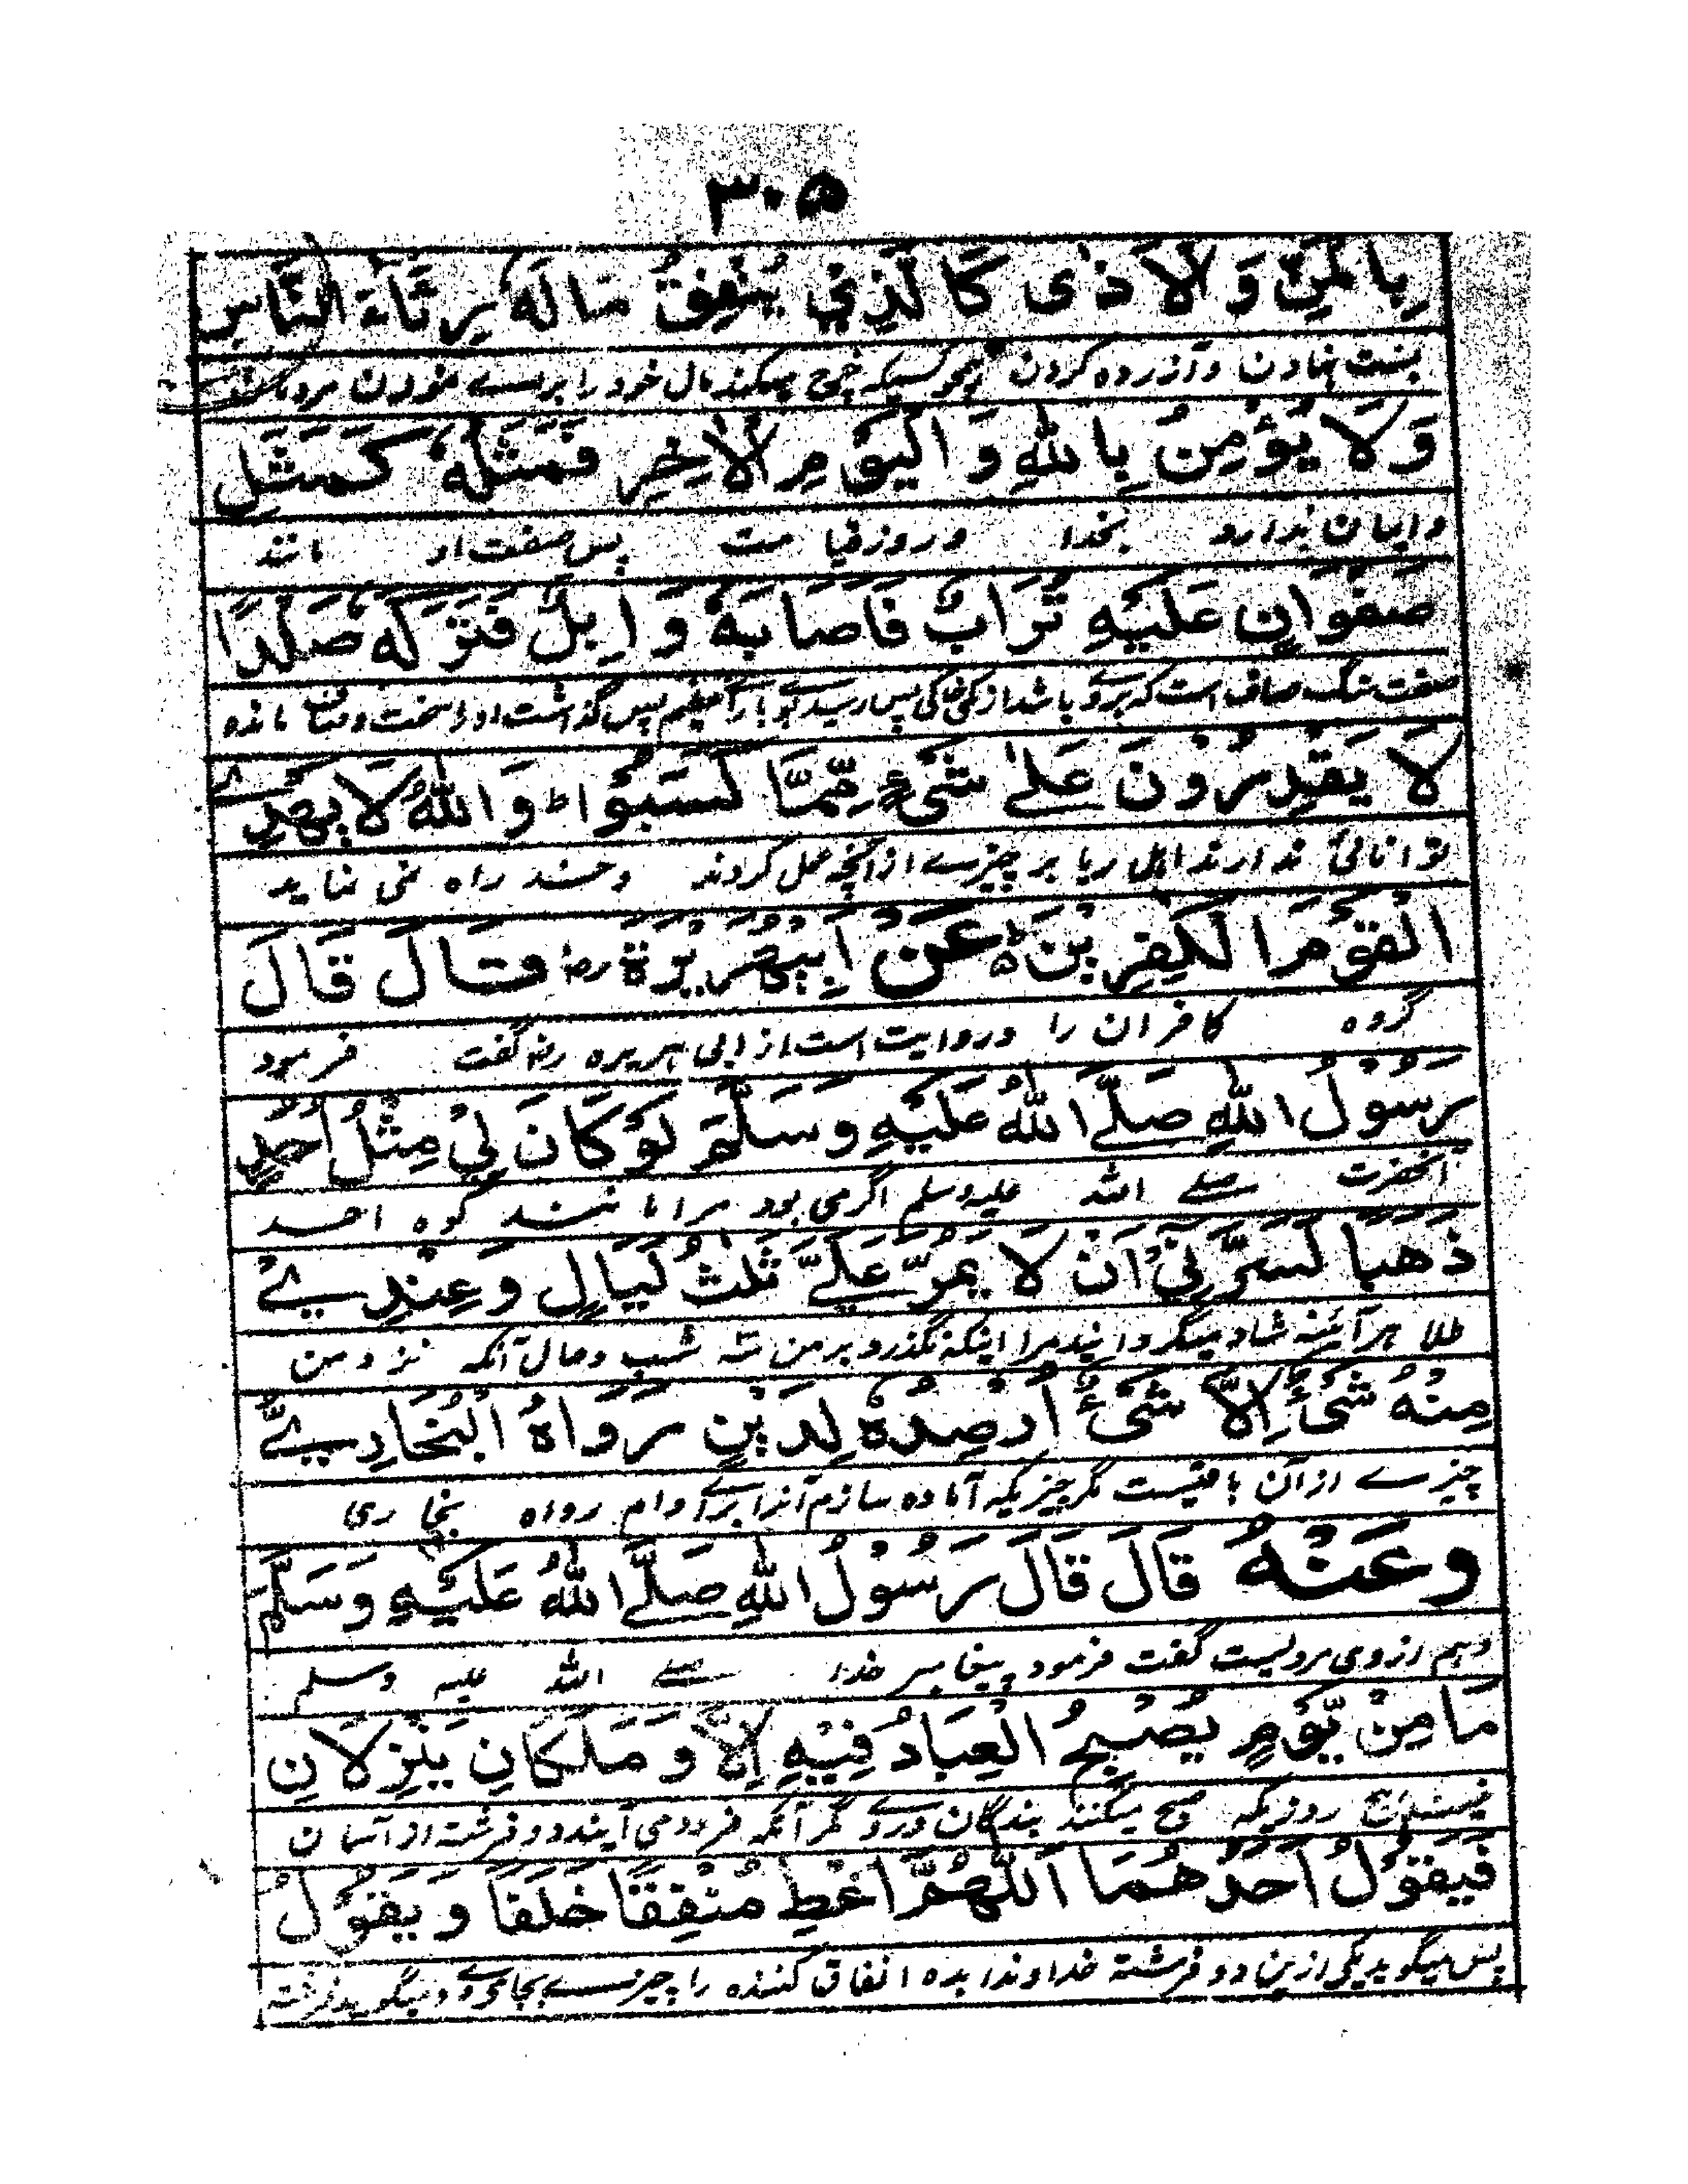 ۳۰۵
بِالْمَنِّ وَالْاَذٰی كَالَّذِیْ یُنْفِقُ مَالَهٗ رِئَآءَ النَّاسِ
بمنت نهادن و آزرده کردن همچو کسیکه خرچ میکند مال خود را برائے نمودن مردمان
وَلَا یُؤْمِنُ بِاللّٰهِ وَ الْیَوْمِ الْاٰخِرِ فَمَثَلُهٗ كَمَثَلِ
و ایمان ندارد بخدا و روز قیامت پس صفت او مانند
صَفْوَانٍ عَلَیْهِ تُرَابٌ فَاَصَابَهٗ وَابِلٌ فَتَرَكَهٗ صَلْدًا
صفت سنگ صاف است که بروے باشد اندکی خاکی پس رسید باران عظیم پس گذاشت او را سخت و صاف مانده
لَا یَقْدِرُوْنَ عَلٰے شَیْءٍ مِّمَّا كَسَبُوْا ط وَ اللّٰهُ لَا یَهْدِے
توانائی ندارند اهل ریا بر چیزے از آنچه عمل کردند و خدا راه نمی نماید
الْقَوْمَ الْكٰفِرِیْنَ عَنْ اَبِیْهُرَیْرَةَ رض قَالَ قَالَ
گروه کافران را و روایت است از ابی هریره رض گفت فرمود
رَسُوْلُ اللّٰهِ صَلَّے اللّٰهُ عَلَیْهِ وَسَلَّمَ لَوْ كَانَ لِیْ مِثْلُ اُحُدٍ
آنحضرت صلے الله علیه وسلم اگر می بود مرا مانند کوه احد
ذَهَبًا لَسَرَّنِیْ اَنْ لَا یَمُرَّ عَلَیَّ ثَلٰثُ لَیَالٍ وَعِنْدِیْ
طلا هر آئینه شاد میگردانید مرا اینکه نگذرد بر من سه شب و حال آنکه نزد من
مِنْهُ شَیْءٌ اِلَّا شَیْءٌ اُرْصِدُهٗ لِدَیْنٍ رَوَاهُ الْبُخَارِیُّ
چیزے از آن باقیست مگر چیزیکه آماده سازم آنرا برائے وام رواه بخاری
وعَنْهُ قَالَ قَالَ رَسُوْلُ اللّٰهِ صَلَّے اللّٰهُ عَلَیْهِ وَسَلَّمَ
وهم از وی مرویست گفت فرمود پیغامبر خدا صلے الله علیه وسلم
مَا مِنْ یَّوْمٍ یُصْبِحُ الْعِبَادُ فِیْهِ اِلَّا وَ مَلَكَانِ یَنْزِلَانِ
نیست هیچ روزیکه صبح میکنند بندگان در وے مگر آنکه فرود می آیند دو فرشته از آسمان
فَیَقُوْلُ اَحَدُهُمَا اَللّٰهُمَّ اَعْطِ مُنْفِقًا خَلَفًا وَ یَقُوْلُ
پس میگوید یکی ازین دو فرشته خداوندا بده انفاق کننده را چیزے بجائے وے و میگوید فرشته